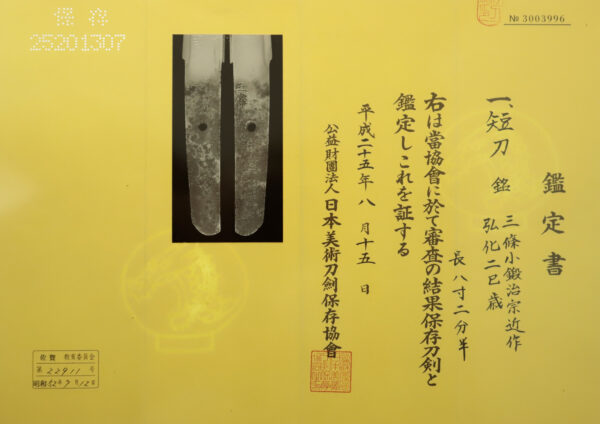 鑑定書
一、短刀 銘 三條小鍛治宗近作
弘化二巳歳
長八寸二分半
右は當協會に於て審査の結果保存刀剣と
鑑定しこれを証する
平成二十五年八月十五日
公益財團法人日本美術刀劍保存協會
№ 3003996
保存
25201307
佐賀 教育委員会
第 22911 号
昭和